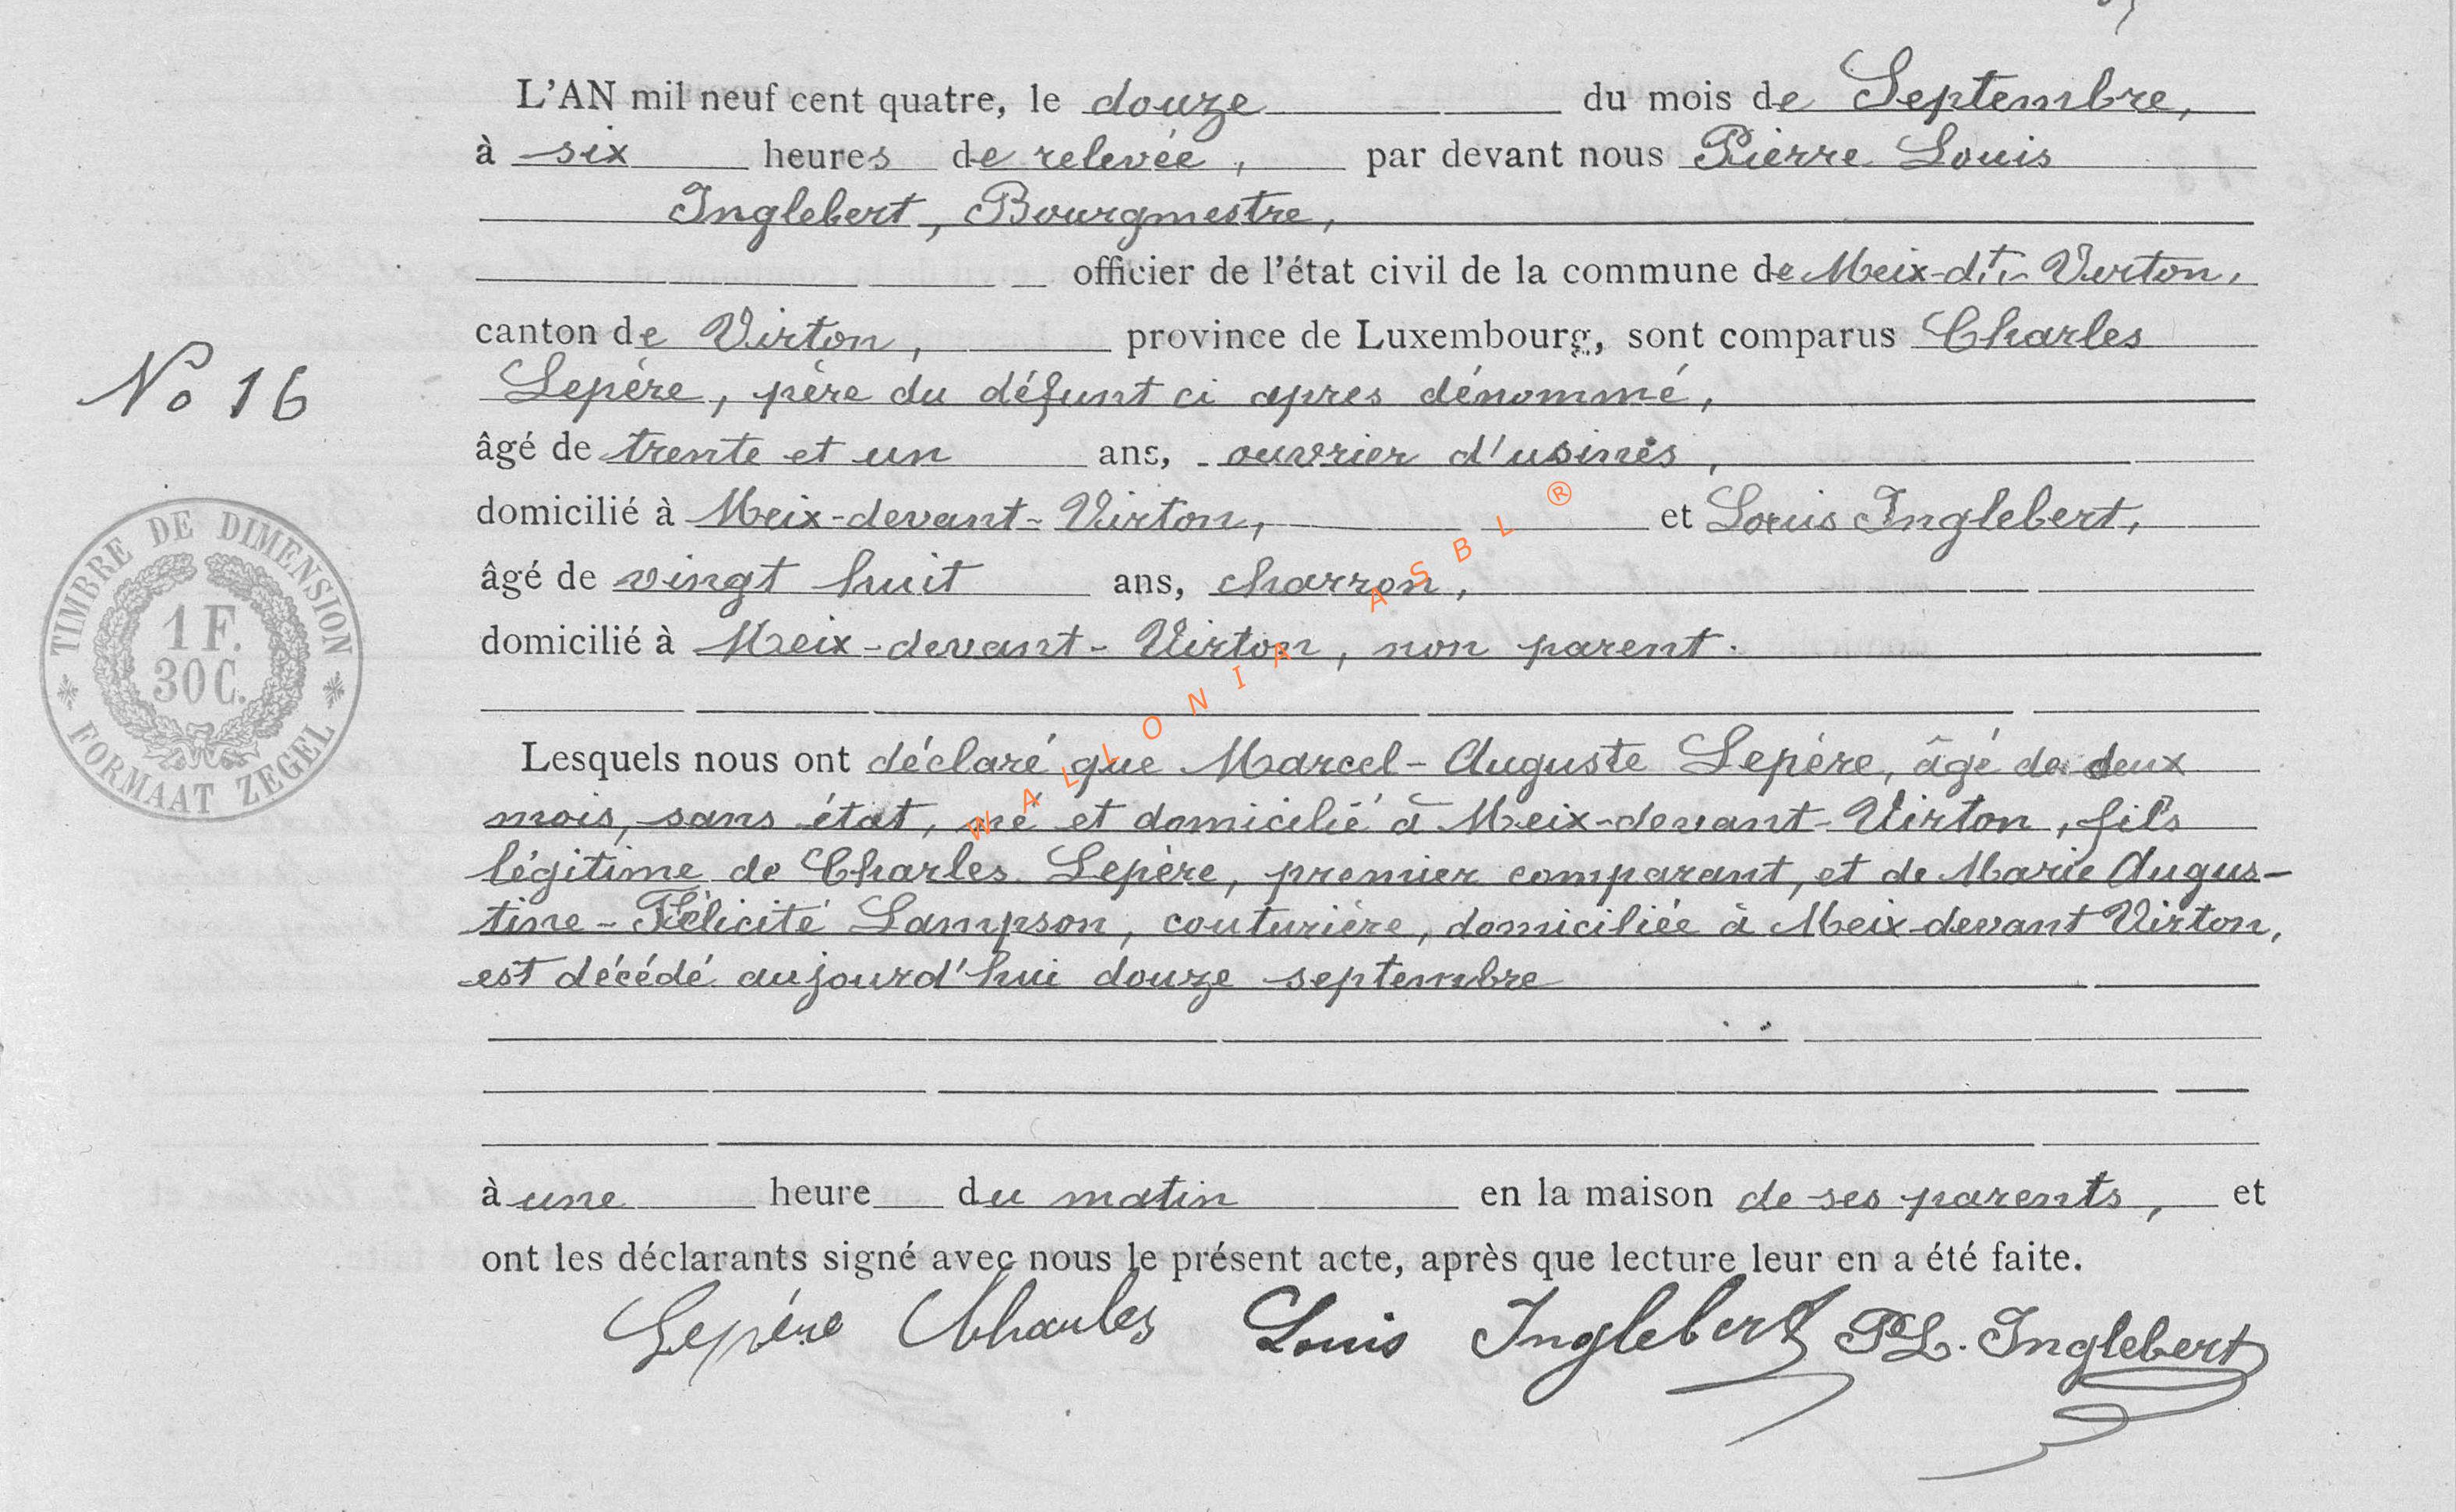 L'AN mil neuf cent quatre, le douze du mois de Septembre,
à six heures de relevée, par devant nous Pierre Louis
Inglebert, Bourgmestre,
officier de l'état civil de la commune de Meix-dt-Virton,
canton de Virton, province de Luxembourg, sont comparus Charles
No 16
Lepère, père du défunt ci apres dénommé,
âgé de trente et un ans, ouvrier d'usines,
domicilié à Meix-devant-Virton, et Louis Inglebert,
âgé de vingt huit ans, charron,
domicilié à Meix-devant-Virton, non parent.
TIMBRE DE DIMENSION
1 F.
30 C.
FORMAAT ZEGEL
WALLONIA ASBL ®
Lesquels nous ont déclaré que Marcel-Auguste Lepère, âgé de deux
mois, sans état, né et domicilié à Meix-devant-Virton, fils
légitime de Charles Lepère, premier comparant, et de Marie Augus-
tine-Félicité Lampson, couturière, domiciliée à Meix-devant Virton,
est décédé aujourd'hui douze septembre
à une heure du matin en la maison de ses parents, et
ont les déclarants signé avec nous le présent acte, après que lecture leur en a été faite.
Lepère Charles Louis Inglebert P.L. Inglebert